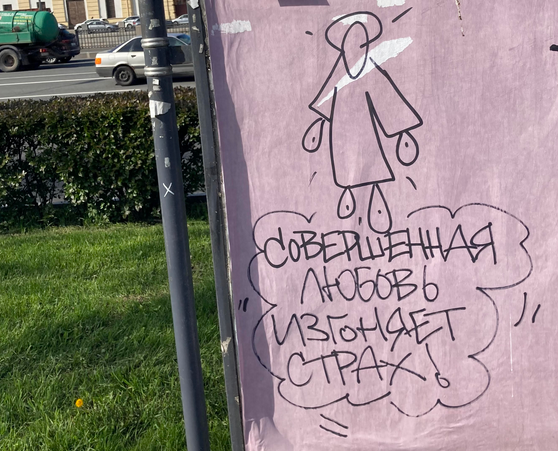 СОВЕРШЕННАЯ
ЛЮБОВЬ
ИЗГОНЯЕТ
СТРАХ!